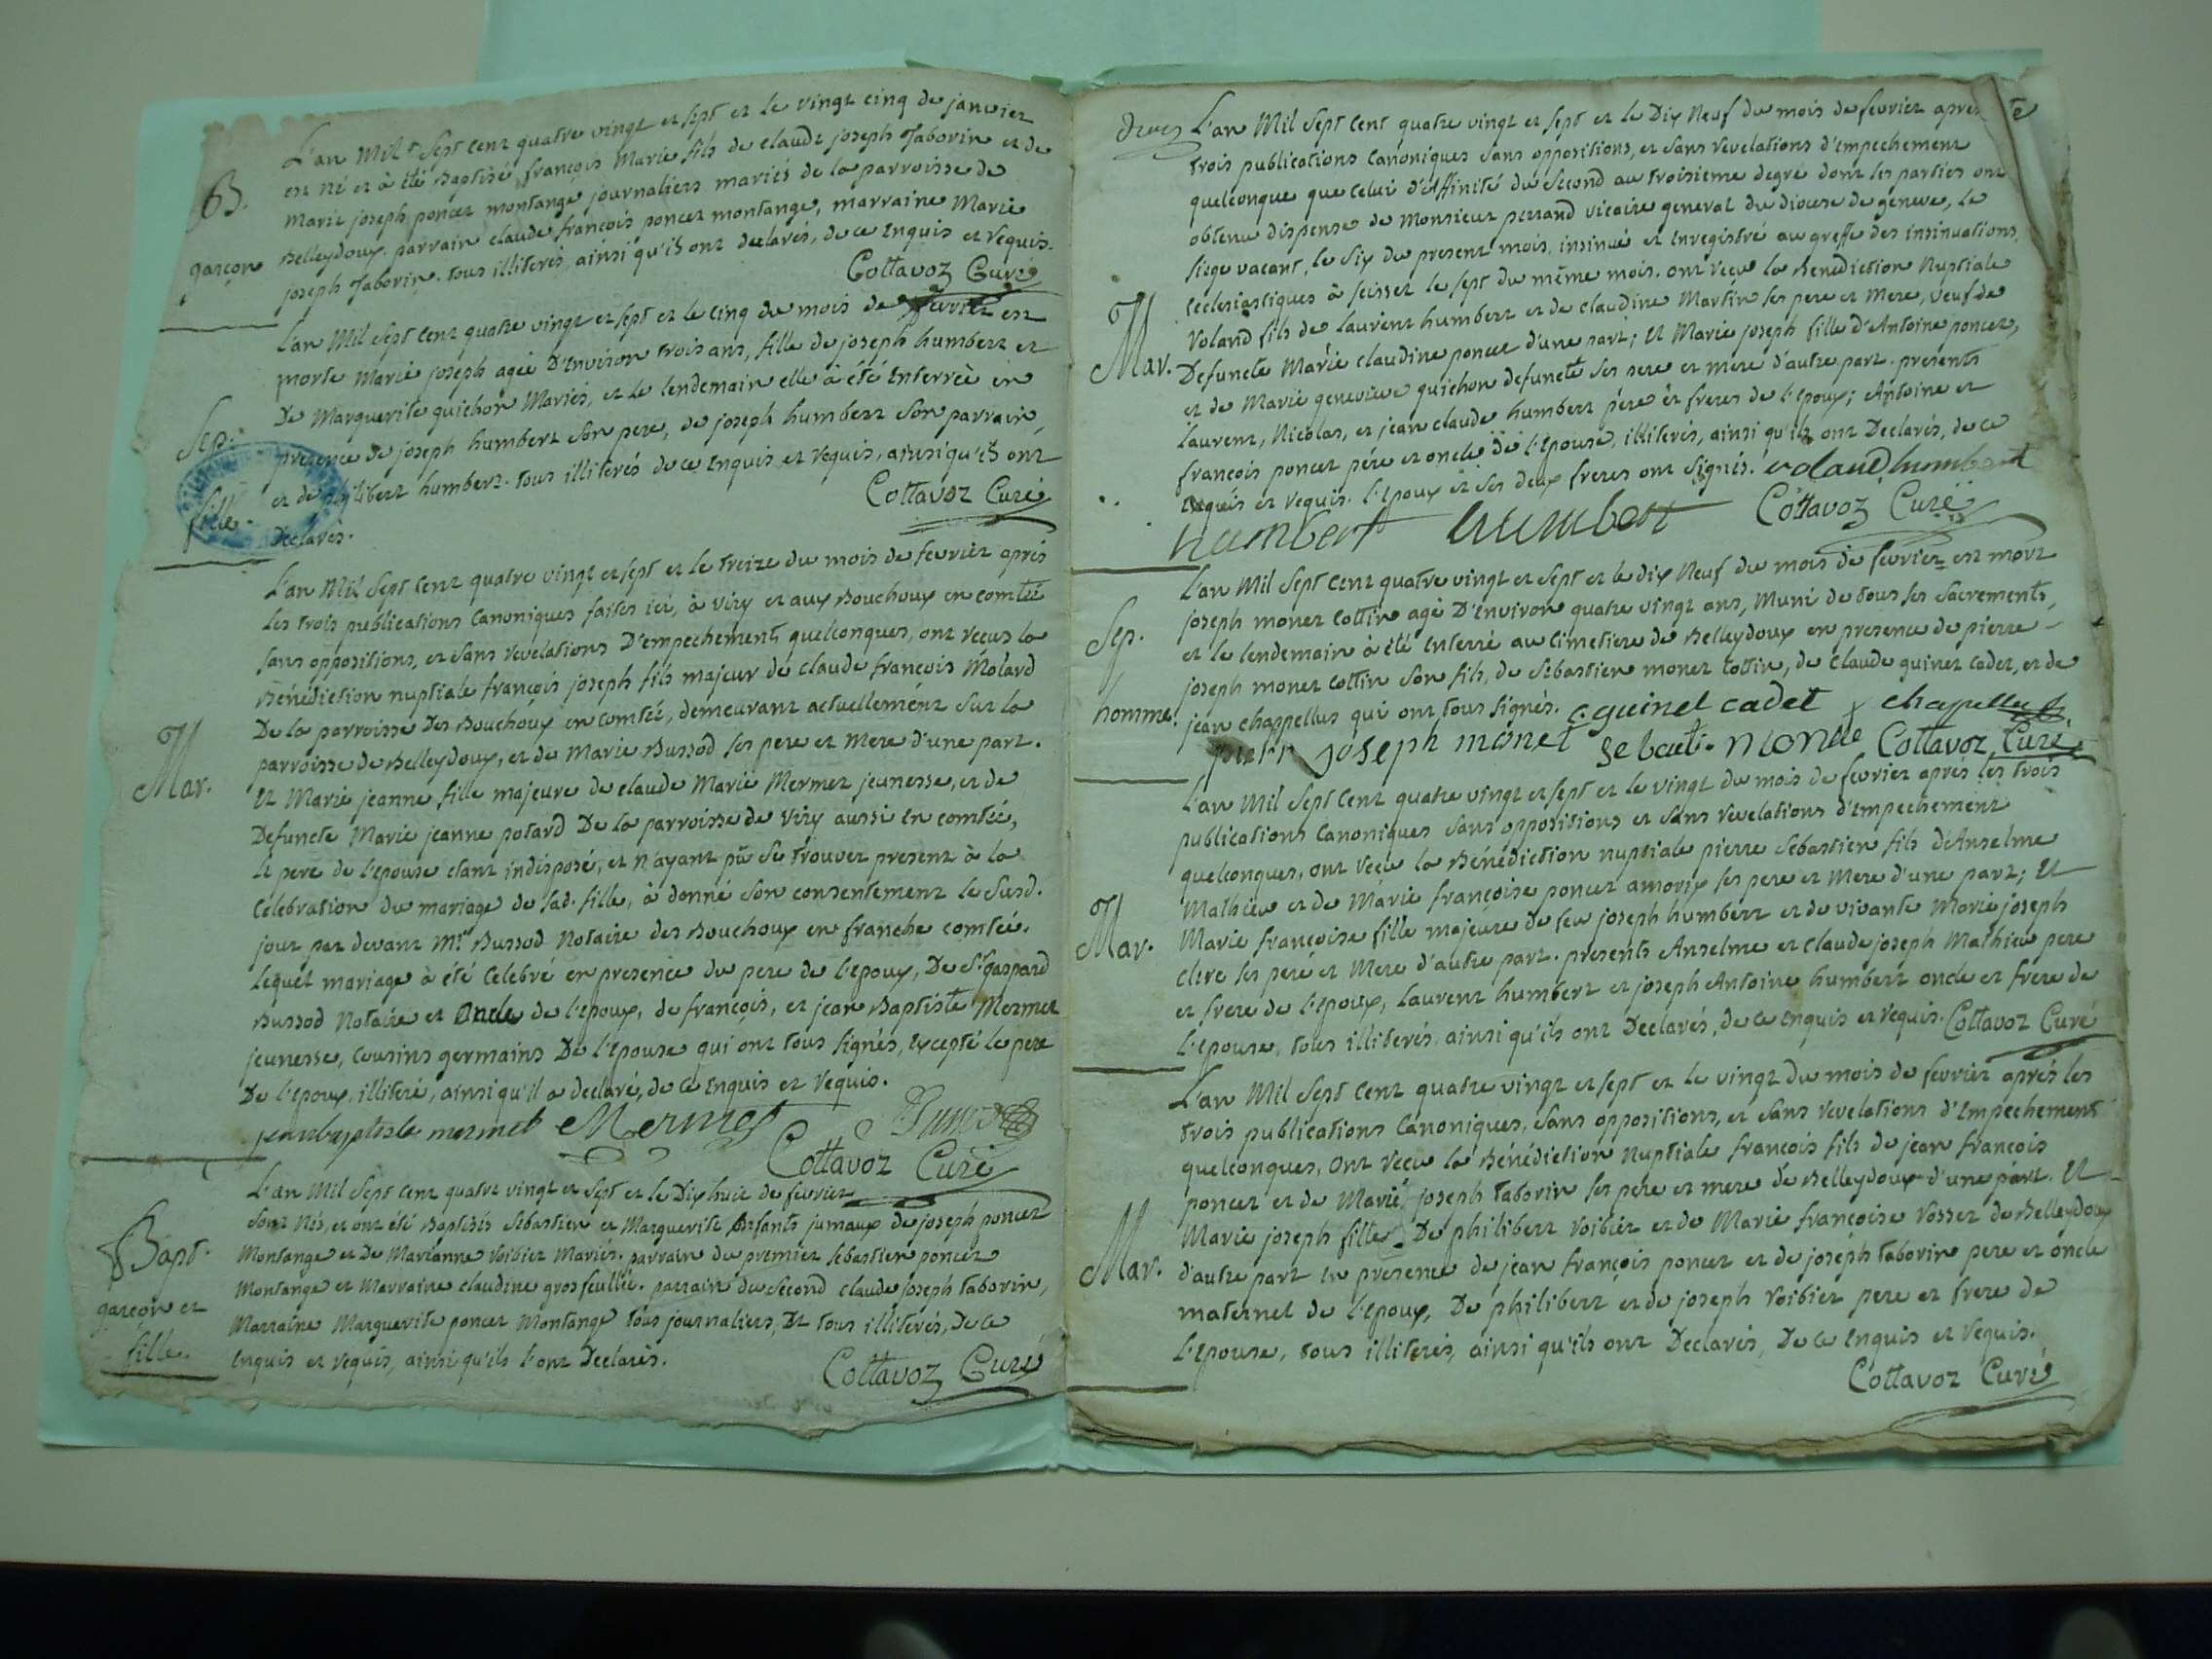 B.
garçon
L'an Mil Sept Cent quatre vingt et sept et le vingt cinq de janvier
est né et à été Baptisé françois Marie fils de claude joseph Taborin et de
Marie joseph poncet montange journaliers mariés de la parroisse de
Belleydoux. parrain claude françois poncet montange, marraine Marie
joseph Taborin. tous illiterés, ainsi qu'ils ont declarés, de ce enquis et requis.
Cottavoz Curé
Sep.
fille.
L'an Mil Sept Cent quatre vingt et sept et le cinq du mois de fevrier est
morte Marie joseph agée D'Environ trois ans, fille de joseph humbert et
De Marguerite guichon Mariés, et le lendemain elle à été Enterrée en
presence de joseph humbert son pere, de joseph humbert son parrain,
et de philibert humbert. tous illiterés de ce enquis et requis, ainsi qu'ils ont
Déclarés.
Cottavoz Curé
Mar.
L'an Mil Sept Cent quatre vingt et sept et le treize du mois de fevrier après
les trois publications Canoniques faites ici, à viry et aux Bouchoux en comtée
sans oppositions, et sans revelations D'empechements quelconques, ont reçus la
Bénédiction nuptiale françois joseph fils majeur de claude françois Molard
De la parroisse Des Bouchoux en comtée, demeurant actuellement sur la
parroisse de Belleydoux, et de Marie Bussod ses pere et Mere d'une part.
Et Marie jeanne fille majeure de claude Marie Mermet jeunesse, et de
Defuncte Marie jeanne potard De la parroisse de viry aussi en comtée,
le pere de l'épouse etant indisposé, et n'ayant pû se trouver present à la
Celebration du mariage de sad. fille, à donné son consentement le susd.
jour par devant Mr. Bussod Notaire des Bouchoux en franche comtée.
Lequel mariage à été Celebré en presence du pere de l'epoux, De Sr. gaspard
Bussod Notaire et Oncle de l'epoux, de françois, et jean Baptiste Mermet
jeunesse, Cousins germains De l'epouse qui ont tous signés, Excepté le pere
De l'epoux, illiteré, ainsi qu'il a declaré, de ce enquis et requis.
jeanbaptiste mermet Mermet
Cottavoz Curé
Bapt.
garçon et
fille.
L'an Mil Sept Cent quatre vingt et sept et le Dix huit de fevrier
sont nés, et ont été Baptisés Sebastien et Marguerite Enfants jumaux de joseph poncet
Montange et De Marianne Voibier Mariés. parrain du premier sebastien poncet
Montange et Marraine claudine grosfeullée. parrain du second claude joseph taborin,
Marraine Marguerite poncet Montange tous journaliers, Et tous illiterés, De ce
Enquis et requis, ainsi qu'ils l'ont Declarés.
Cottavoz Curé
Mar.
L'an Mil Sept Cent quatre vingt et sept et le Dix Neuf du mois de fevrier apres
trois publications Canoniques sans oppositions, et sans revelations d'Empechement
quelconque que celui d'affinité du second au troisieme degré dont les parties ont
obtenu dispense de Monsieur perrand vicaire general du diocese de geneve, le
siege vacant, le six du present mois, insinué et Enregistré au greffe des insinuations
Ecclesiastiques à seissel le sept du même mois. ont reçu la Benediction Nuptiale
Roland fils de laurent humbert et de claudine Martin ses pere et Mere, veuf de
Defuncte Marie claudine poncet d'une part; Et Marie joseph fille d'Antoine poncet,
et de Marie genevieve guichon defuncte ses pere et mere d'autre part. presents
laurent, Nicolas, et jean claude humbert père et freres de l'epoux; Antoine et
françois poncet père et oncle de l'Epouse, illiterés, ainsi qu'ils ont Declarés, de ce
enquis et requis. l'Epoux et ses deux freres ont signés. roland humbert
humbert humbert Cottavoz Curé
Sep.
homme.
L'an Mil Sept Cent quatre vingt et sept et le dix Neuf du mois de fevrier est mort
joseph monet Cottin agé D'environ quatre vingt ans, Muni de tous ses Sacrements,
et le lendemain à été enterré au Cimetiere de Belleydoux en presence de pierre
joseph monet Cottin son fils, de Sebastien monet Cottin, de Claude guinet Cadet, et de
jean chappellus qui ont tous signés. c. guinet cadet chapellus
pierr joseph monet Sebasti. Cottavoz Curé.
Mar.
L'an Mil Sept Cent quatre vingt et sept et le vingt du mois de fevrier après les trois
publications Canoniques sans oppositions et sans revelations d'Empechement
quelconques, ont reçu la Bénédiction nuptiale pierre Sebastien fils d'Anselme
Mathieu et de Marie françoise poncet amorix ses pere et Mere d'une part; Et
Marie françoise fille majeure de feu joseph humbert et de vivante Marie joseph
Clerc ses peré et Mere d'autre part. presents Anselme et Claude joseph Mathieu pere
et frere de l'Epoux, laurent humbert et joseph Antoine humbert oncle et frere de
l'épouse, tous illiterés, ainsi qu'ils ont Declarés, de ce enquis et requis. Cottavoz Curé
Mar.
L'an Mil Sept Cent quatre vingt et sept et le vingt du mois de fevrier après les
trois publications Canoniques, sans oppositions, et sans revelations d'Empechements
quelconques, Ont reçu la Bénédiction Nuptiale françois fils de jean françois
poncet et de Marie joseph taborin ses pere et mere de Belleydoux d'une part. Et
Marie joseph fille De philibert Voibier et de Marie françoise Rosset de Belleydoux
d'autre part en presence de jean françois poncet et de joseph taborin pere et oncle
maternel de l'epoux, De philibert et de joseph Voibier pere et frere de
L'Epouse, tous illiterés, ainsi qu'ils ont Declarés, De ce enquis et requis.
Cottavoz Curé